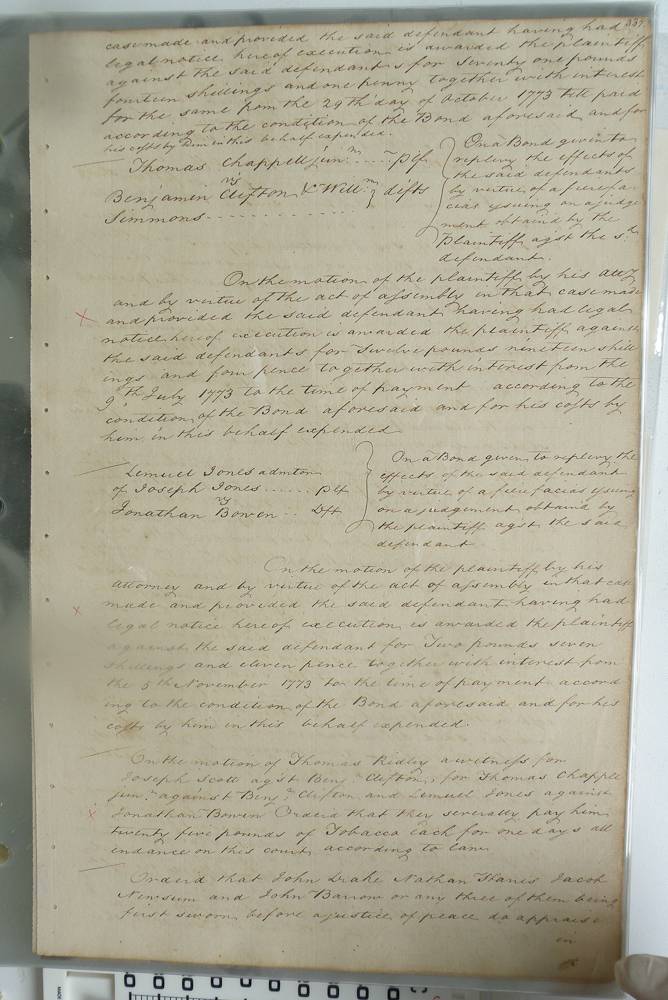 337
case made and provided the said defendant having had
legal notice hereof execution is awarded the plaintiff
against the said defendants for Seventy one pounds
fourteen shillings and one penny together with interest
for the same from the 29th day of October 1773 till paid
according to the condition of the Bond aforesaid and for
his costs by him in this behalf expended.
Thomas Chappell junr. plf
vs
Benjamin Clifton & Willm defts
Simmons
On a Bond given to
replevy the effects of
the said defendants
by virtue of a fierefa
cias issuing on a judge
ment obtaind by the
Plaintiff agst the sd
defendant.
On the motion of the plaintiff by his atty
and by virtue of the act of assembly in that case made
and provided the said defendant having had legal
notice hereof execution is awarded the plaintiff against
the said defendants for Twelve pounds nineteen shill
ings and four pence together with interest from the
9th July 1773 to the time of payment according to the
condition of the Bond aforesaid and for his costs by
him in this behalf expended
Lemuel Jones admtor
of Joseph Jones plf
vs
Jonathan Bowen Dft
On a Bond given to replevy the
effects of the said defendant
by virtue of a fierefacias issuing
on a judgement obtaind by
the plaintiff agst the said
defendant
On the motion of the plaintiff by his
attorney and by virtue of the act of assembly in that case
made and provided the said defendant having had
legal notice hereof execution is awarded the plaintiff
against the said defendant for Two pounds seven
shillings and eleven pence together with interest from
the 5th November 1773 to the time of payment accord
ing to the condition of the Bond aforesaid and for his
costs by him in this behalf expended.
On the motion of Thomas Ridley a witness for
Joseph Scott agst Benjn Clifton, for Thomas Chappell
junr against Benjn Clifton and Lemuel Jones against
Jonathan Bowen Orderd that they severally pay him
twenty five pounds of Tobacco each for one days att
endance on this court according to law
Orderd that John Drake Nathan Jacob
Newsum and John Barrow or any three of them being
first sworn before a justice of peace do appraise